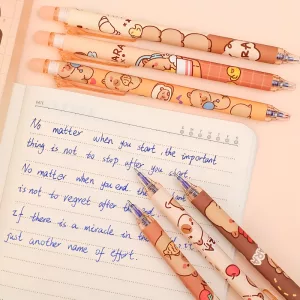 No matter when you start, the important
thing is not to stop after you start.
No matter when you end, the
is not to regret after the
If there is a miracle in the
just another name of effort.